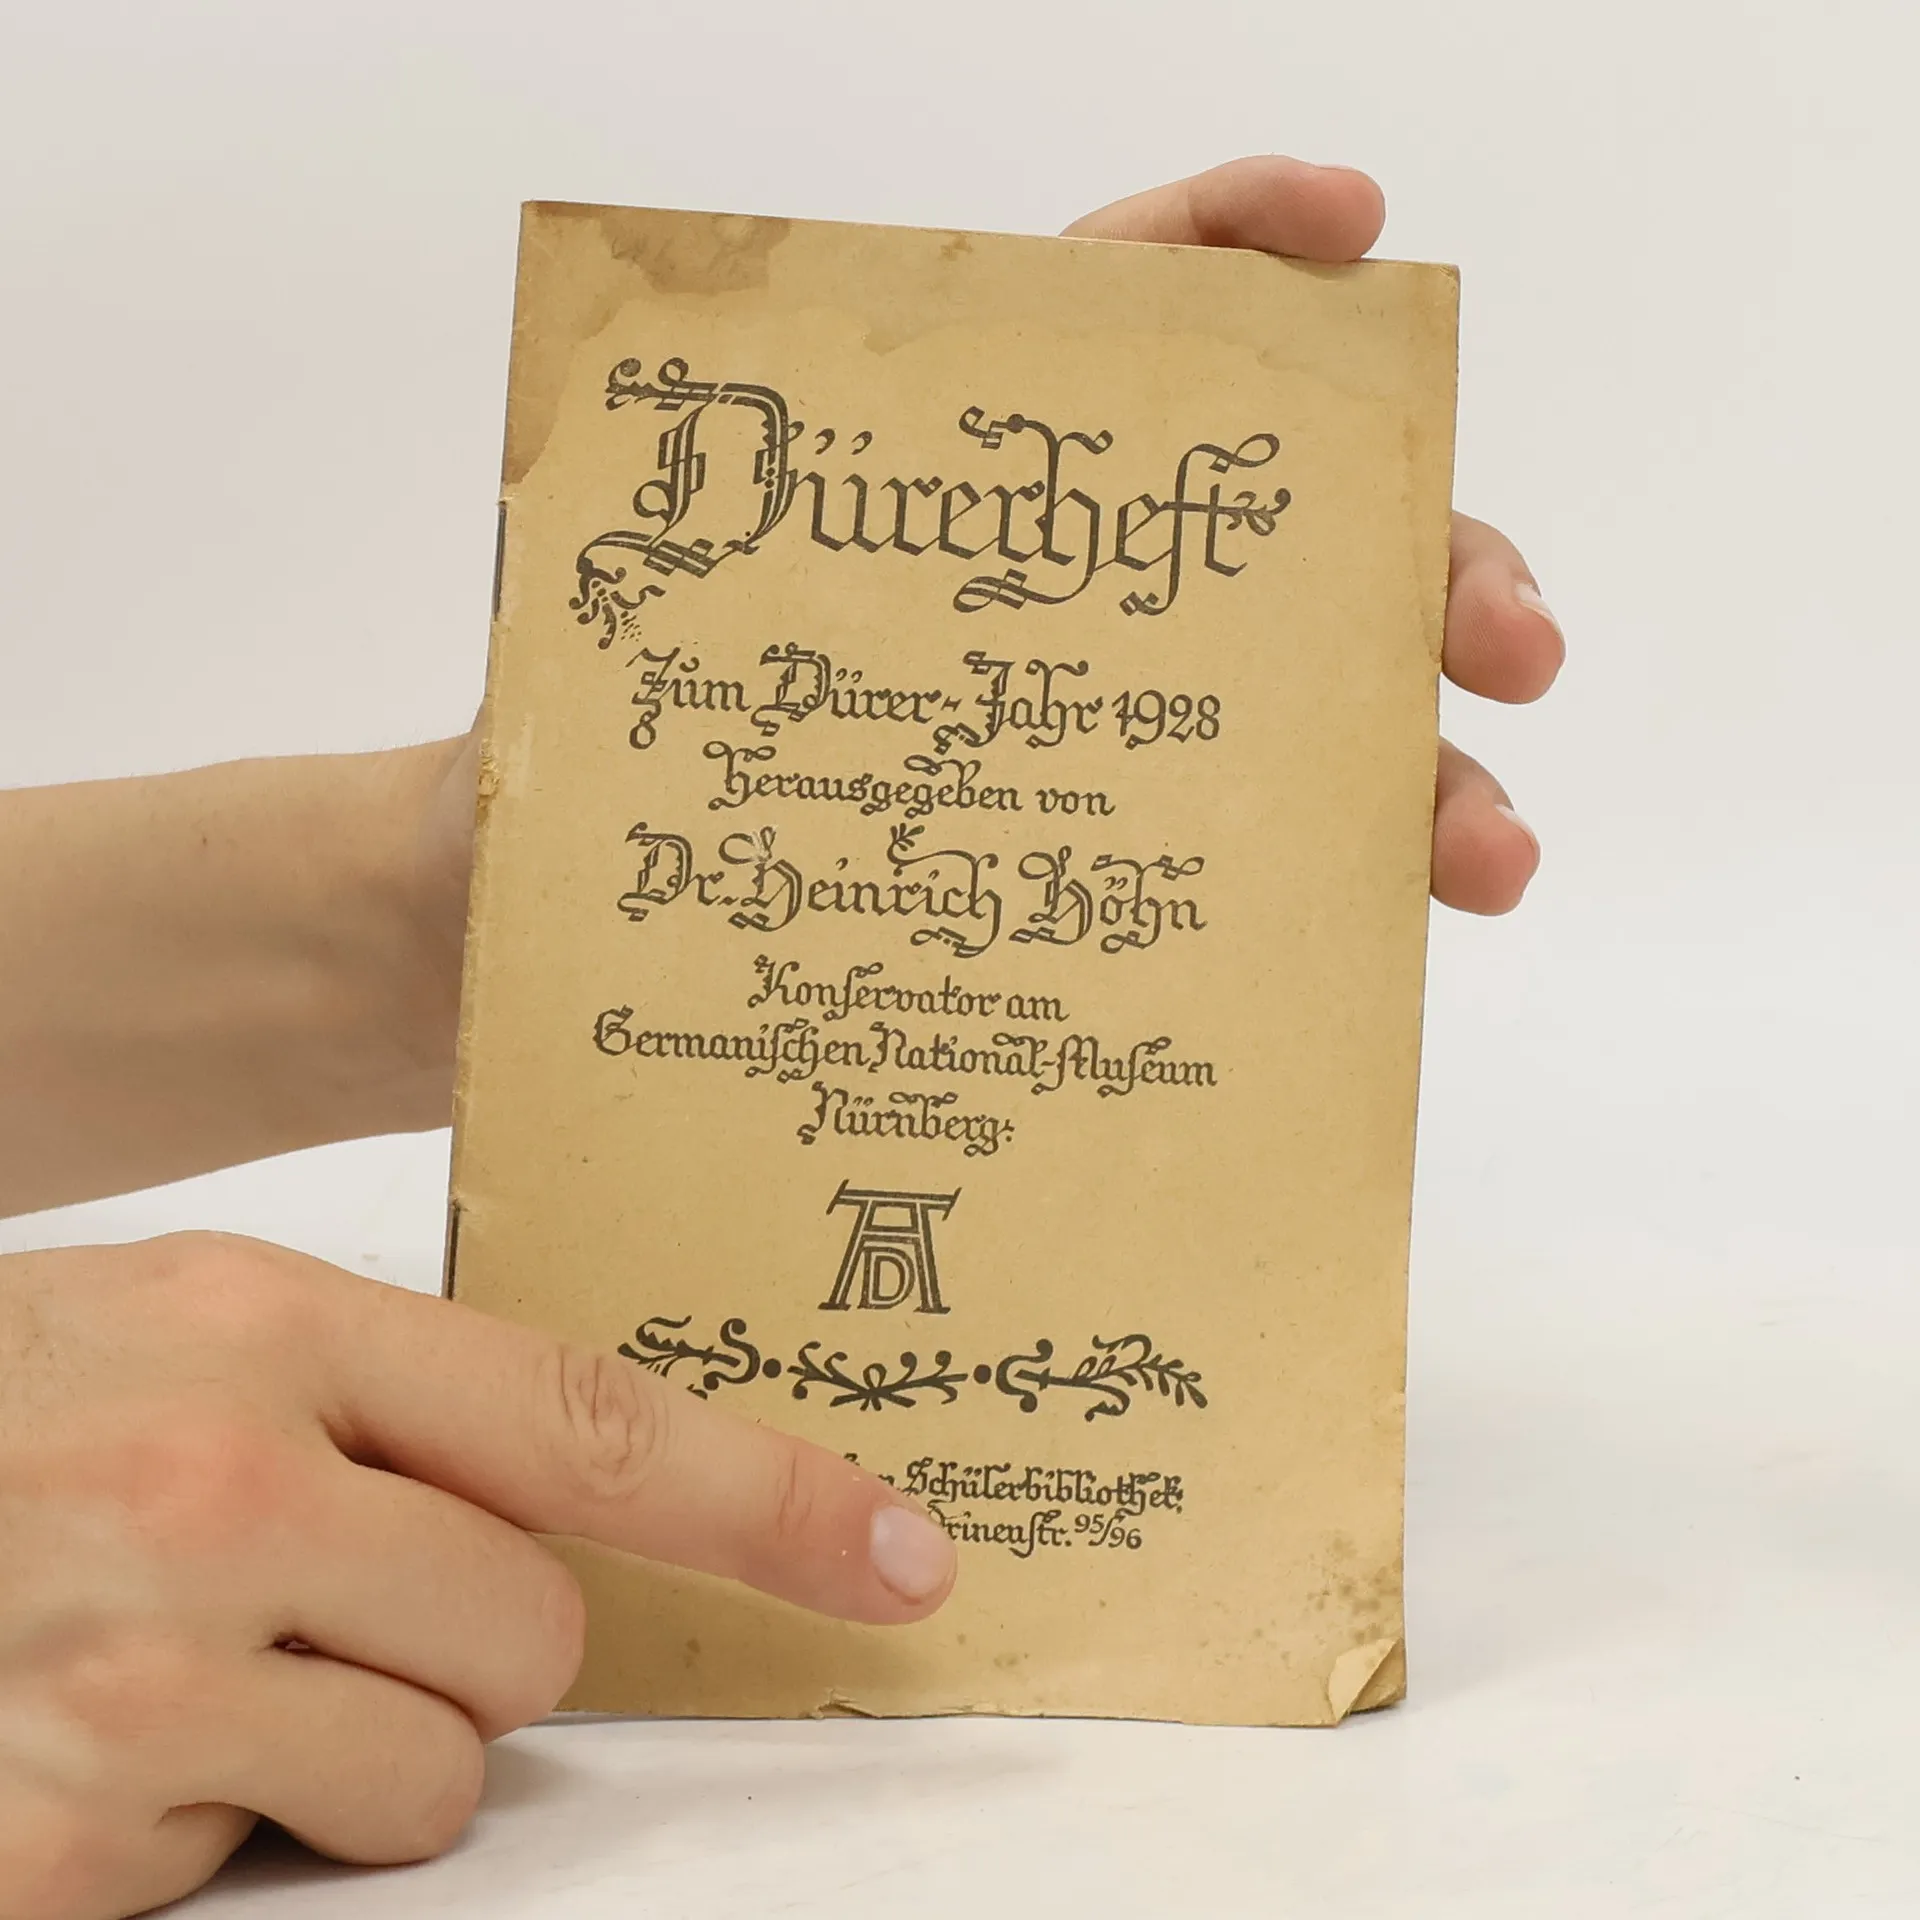 Dürerheft
Zum Dürer-Jahr 1928
Herausgegeben von
Dr. Heinrich Höhn
Konservator am
Germanischen National-Museum
Nürnberg:
AD
Schülerbibliothek:
95/96